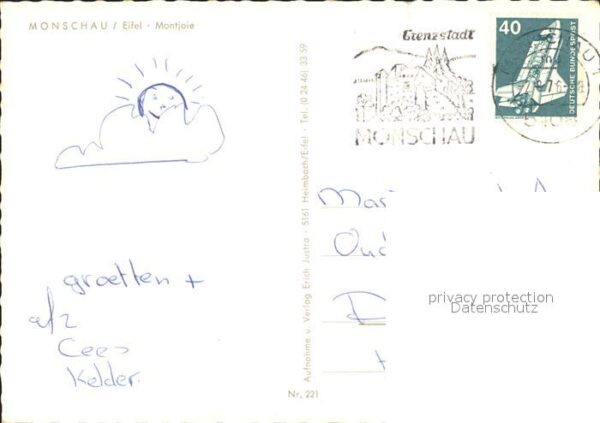 MONSCHAU / Eifel - Montjoie
Grenzstadt
MONSCHAU
40
DEUTSCHE BUNDESPOST
Aufnahme u. Verlag Erich Justra · 5161 Heimbach/Eifel · Tel. (0 24-46) 33 59
groetten +
afz
Cees
Kelder.
Mar
Oud
privacy protection
Datenschutz
Nr. 221